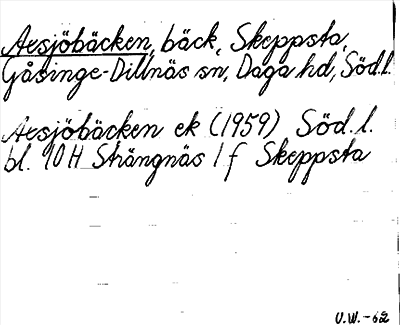 Aesjöbäcken, bäck, Skeppsta,
Gåsinge-Dillnäs sn, Daga hd, Söd.l.
Aesjöbäcken ek (1959) Söd.l.
bl. 10 H Strängnäs 1 f Skeppsta
V.W.-62